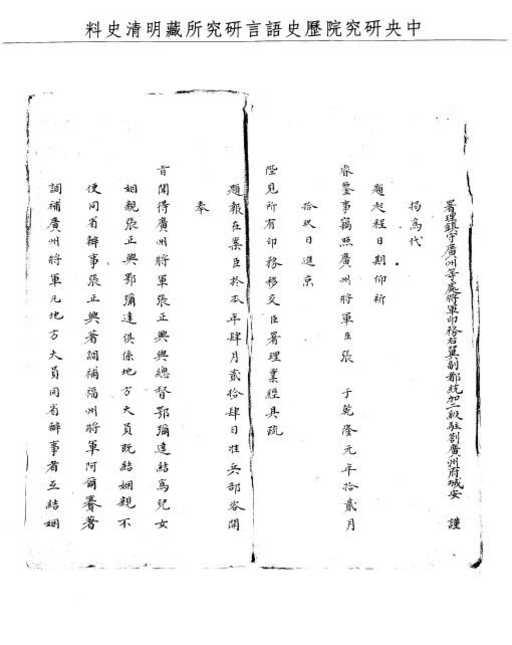 中央研究院歷史語言研究所藏明清史料
署理鎮守廣州等處將軍印務右翼副都統加二級駐劄廣州府城安 謹
揭爲代
題起程日期仰祈
睿鑒事竊照廣州將軍臣張 于乾隆元年拾貳月
拾玖日進京
陛見所有印務移交臣署理業經具疏
題報在案臣於本年肆月貳拾肆日准兵部咨開
奉
旨聞得廣州將軍張正興與總督鄂彌達結爲兒女
姻親張正興鄂彌達俱係地方大員既結姻親不
便同省辦事張正興著調補福州將軍阿爾賽著
調補廣州將軍凡地方大員同省辦事者互結姻